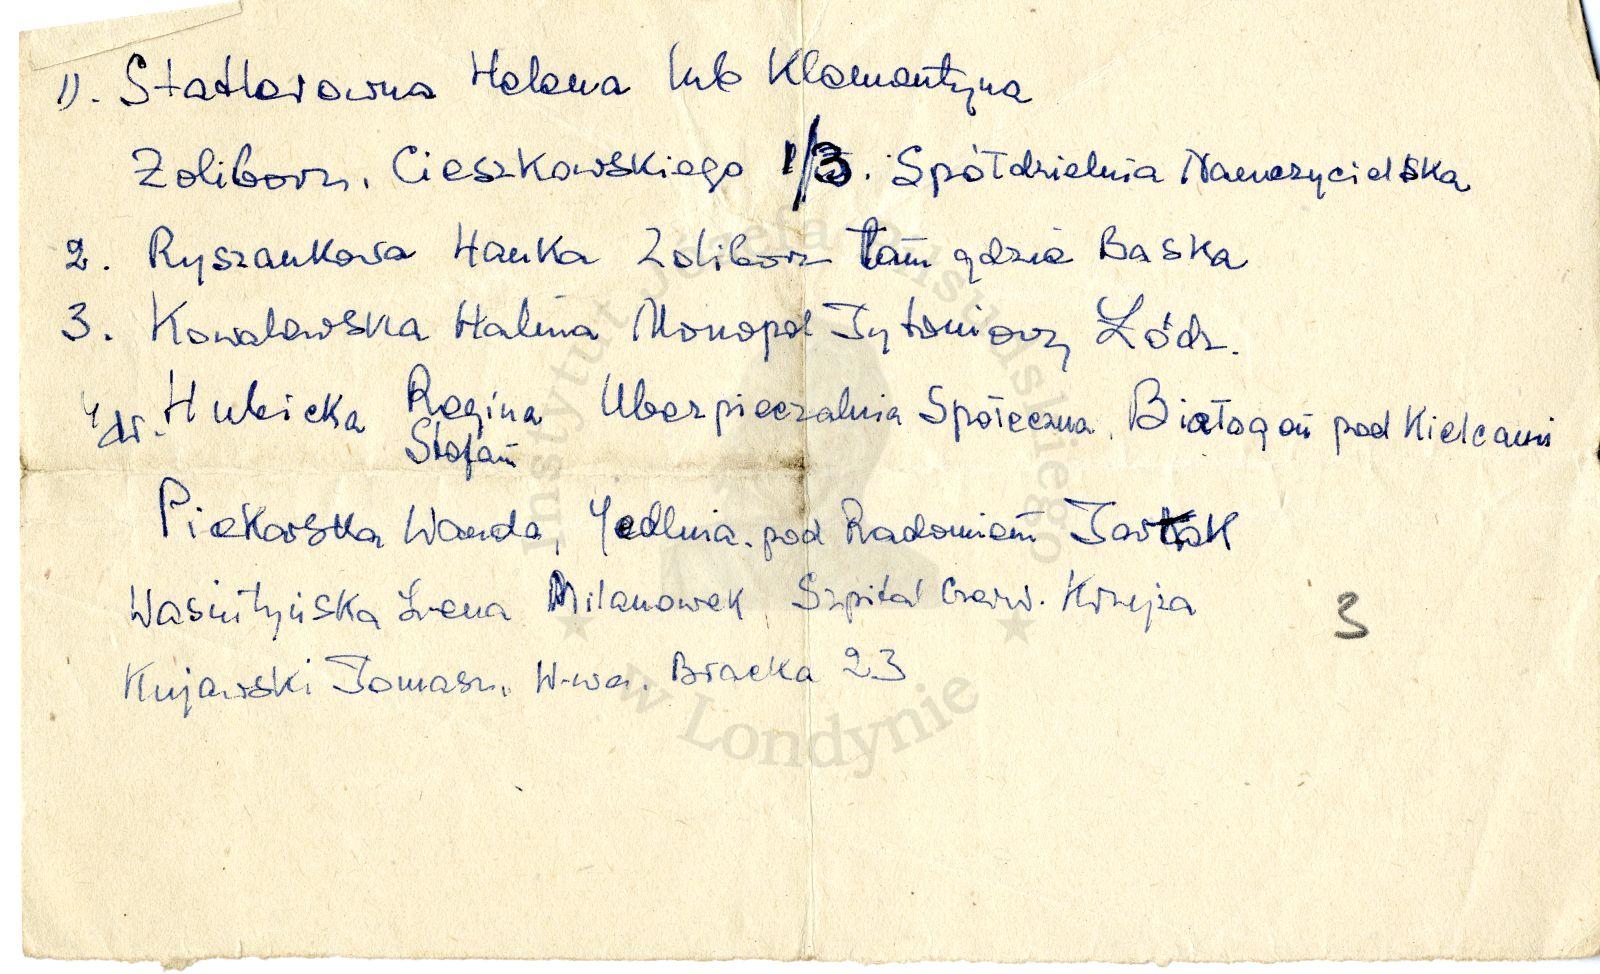 1). Stattlerowna Helena lub Klementyna
Zoliborz, Cieszkowskiego 1/3. Spółdzielnia Nauczycielska
2. Ryszankowa Hanka Zoliborz tam gdzie Baska
3. Kowalewska Halina Monopol Tytoniowy Łódz.
4 dr. Hubicka Regina Ubezpieczalnia Społeczna, Białogon pod Kielcami
Stefan
Piekarska Wanda, Jedlnia. pod Radomiem Tartak
Wasiutyńska Irena Milanowek, Szpital Czerw. Krzyża
3
Kujawski Tomasz, W-wa. Bracka 23
Instytut Józefa Piłsudskiego
w Londynie